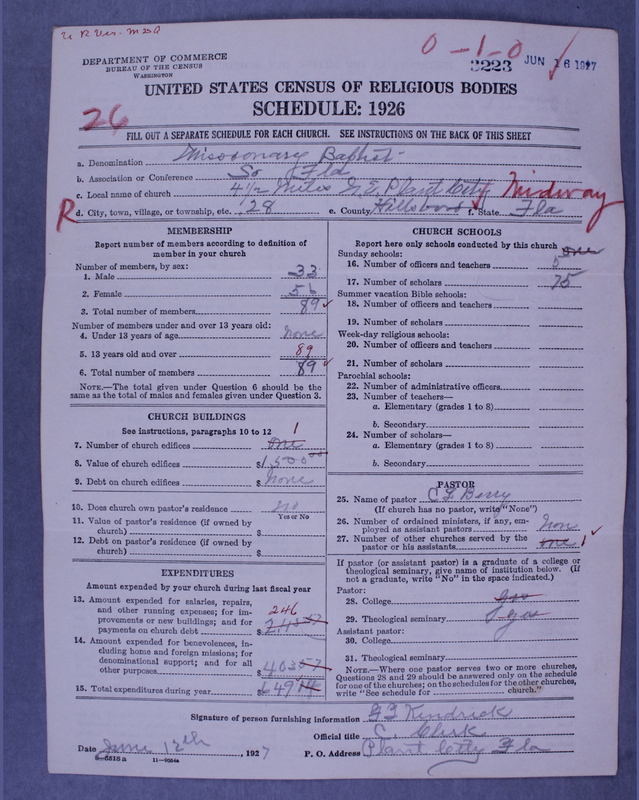 DEPARTMENT OF COMMERCE
BUREAU OF THE CENSUS
WASHINGTON
0-1-0
3223 JUN 16 1927
UNITED STATES CENSUS OF RELIGIOUS BODIES
SCHEDULE: 1926
26
FILL OUT A SEPARATE SCHEDULE FOR EACH CHURCH. SEE INSTRUCTIONS ON THE BACK OF THIS SHEET
a. Denomination Missionary Baptist
b. Association or Conference So Fla
c. Local name of church 4 1/2 Miles N. E. Plant City Midway
R d. City, town, village, or township, etc. 28 e. County Hillsboro f. State Fla
MEMBERSHIP
Report number of members according to definition of member in your church
Number of members, by sex:
1. Male 33
2. Female 56
3. Total number of members 89
Number of members under and over 13 years old:
4. Under 13 years of age none
5. 13 years old and over 89
6. Total number of members 89
NOTE.—The total given under Question 6 should be the
same as the total of males and females given under Question 3.
CHURCH BUILDINGS
See instructions, paragraphs 10 to 12
7. Number of church edifices one 1
8. Value of church edifices $1,500 00
9. Debt on church edifices $ none
10. Does church own pastor's residence no
Yes or No
11. Value of pastor's residence (if owned by
church) $
12. Debt on pastor's residence (if owned by
church) $
EXPENDITURES
Amount expended by your church during last fiscal year
13. Amount expended for salaries, repairs,
and other running expenses; for im-
provements or new buildings; and for
payments on church debt $ 246
14. Amount expended for benevolences, in-
cluding home and foreign missions; for
denominational support; and for all
other purposes $ 403 57
15. Total expenditures during year $ 649 14
CHURCH SCHOOLS
Report here only schools conducted by this church one
Sunday schools:
16. Number of officers and teachers 5
17. Number of scholars 75
Summer vacation Bible schools:
18. Number of officers and teachers
19. Number of scholars
Week-day religious schools:
20. Number of officers and teachers
21. Number of scholars
Parochial schools:
22. Number of administrative officers
23. Number of teachers—
a. Elementary (grades 1 to 8)
b. Secondary
24. Number of scholars—
a. Elementary (grades 1 to 8)
b. Secondary
PASTOR
25. Name of pastor C L Berry
(If church has no pastor, write "None")
26. Number of ordained ministers, if any, em-
ployed as assistant pastors Non
27. Number of other churches served by the
pastor or his assistants one 1
If pastor (or assistant pastor) is a graduate of a college or
theological seminary, give name of institution below. (If
not a graduate, write "No" in the space indicated.)
Pastor:
28. College
29. Theological seminary yes
Assistant pastor:
30. College
31. Theological seminary
NOTE.—Where one pastor serves two or more churches,
Questions 28 and 29 should be answered only on the schedule
for one of the churches; on the schedules for the other churches,
write "See schedule for church."
Signature of person furnishing information G T Kendrick
Official title C. Clerk
Date June 12th, 1927 P. O. Address Plant City Fla
8-5518a 11-9054a